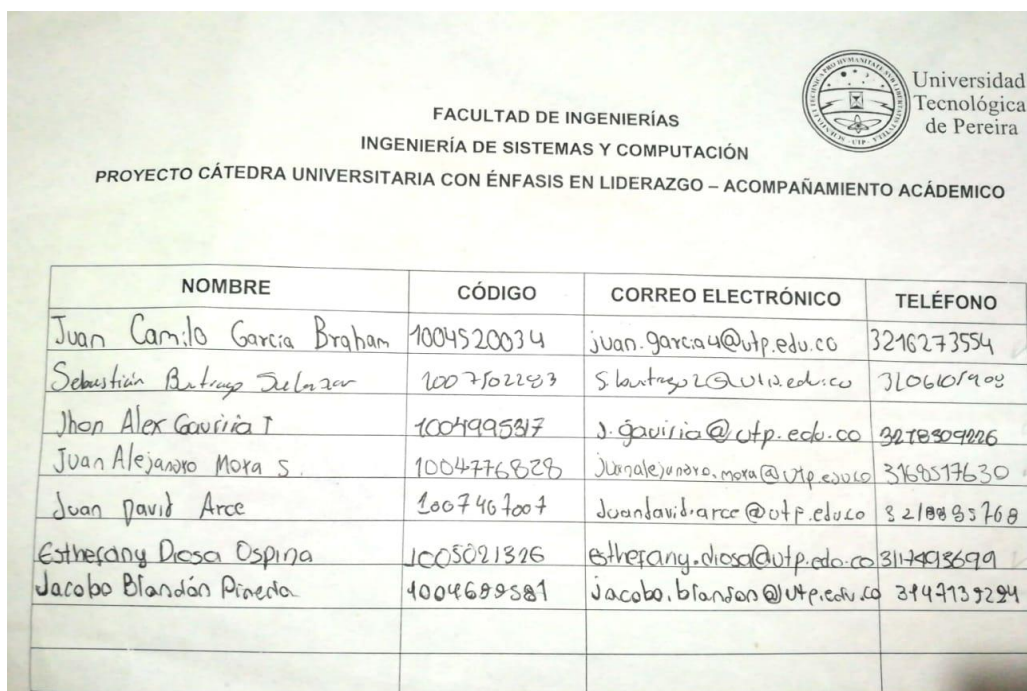 Universidad
Tecnológica
de Pereira
FACULTAD DE INGENIERÍAS
INGENIERÍA DE SISTEMAS Y COMPUTACIÓN
PROYECTO CÁTEDRA UNIVERSITARIA CON ÉNFASIS EN LIDERAZGO – ACOMPAÑAMIENTO ACÁDEMICO
NOMBRE CÓDIGO CORREO ELECTRÓNICO TELÉFONO
Juan Camilo García Braham 1004520034 juan.garcia4@utp.edu.co 3216273554
Sebastián Buitrago Salazar
Jhon Alex Gaviria T 1004995817 j.gaviria@utp.edu.co 3218509226
Juan Alejandro Mora S. 1004776828 juanalejandro.mora@utp.edu.co 3168517630
Juan David Arce 1007467007 Juandavid.arce@utp.edu.co
Estherany Diosa Ospina 1005021326 estherany.diosa@utp.edu.co
Jacobo Blandón Pineda 1004699581 jacobo.blandon@utp.edu.co 3147139294